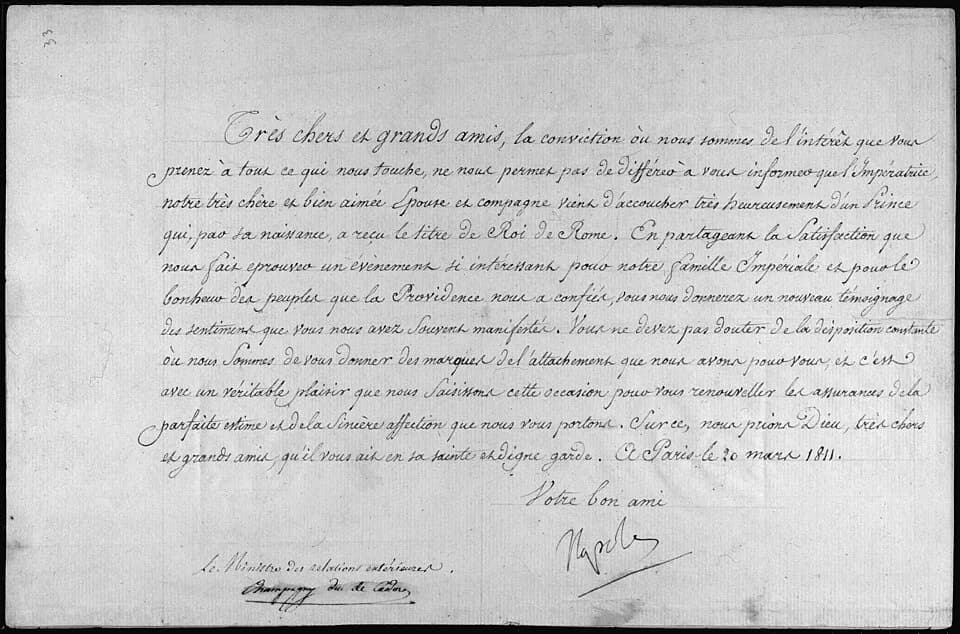 33
Très chers et grands amis, la conviction où nous sommes de l'intérêt que vous
prenez à tout ce qui nous touche, ne nous permet pas de différer à vous informer que l'Impératrice,
notre très chère et bien aimée Epouse et compagne vient d'accoucher très heureusement d'un Prince
qui, par sa naissance, a reçu le titre de Roi de Rome. En partageant la Satisfaction que
nous fait eprouver un évènement si intéressant pour notre famille Impériale et pour le
bonheur des peuples que la Providence nous a confiés, vous nous donnerez un nouveau témoignage
des sentimens que vous nous avez Souvent manifestés. Vous ne devez pas douter de la disposition constante
où nous Sommes de vous donner des marques de l'attachement que nous avons pour vous, et c'est
avec un véritable plaisir que nous Saisissons cette occasion pour vous renouveller les assurances de la
parfaite estime et de la Sincère affection que nous vous portons. Sur ce, nous prions Dieu, très chers
et grands amis, qu'il vous ait en sa sainte et digne garde. A Paris le 20 mars 1811.
Votre bon ami
Napole
Le Ministre des relations extérieures.
Champagny duc de Cadore